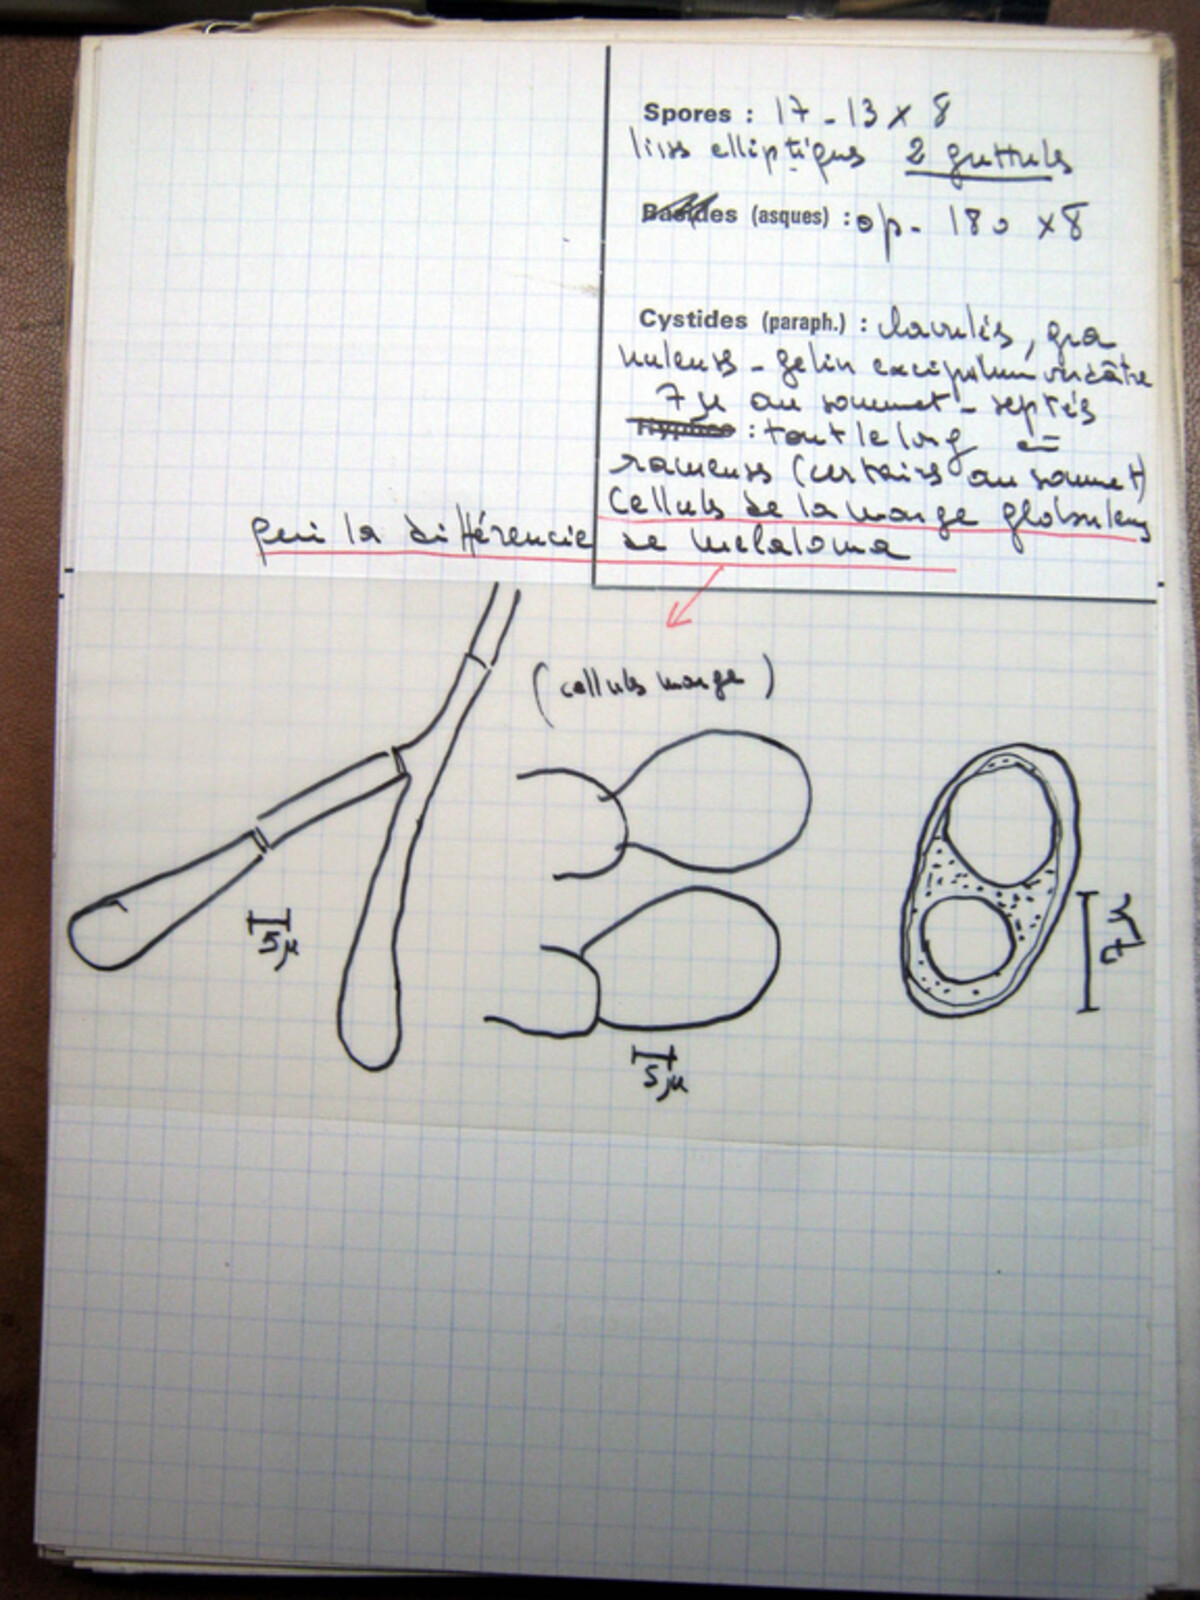 Spores : 17 - 13 x 8
liss elliptiques 2 guttules
Basides (asques) : op. 180 x 8
Cystides (paraph.) : clavulés, gra
nuleuses - gelin excipulum verdâtre
7 µ au sommet - septés
Hyphes : tout le long et
rameuses (certains au sommet)
Cellules de la marge globuleuses
qui la différencie de melaloma
(cellules marge)
5 µ
5 µ
5 µ